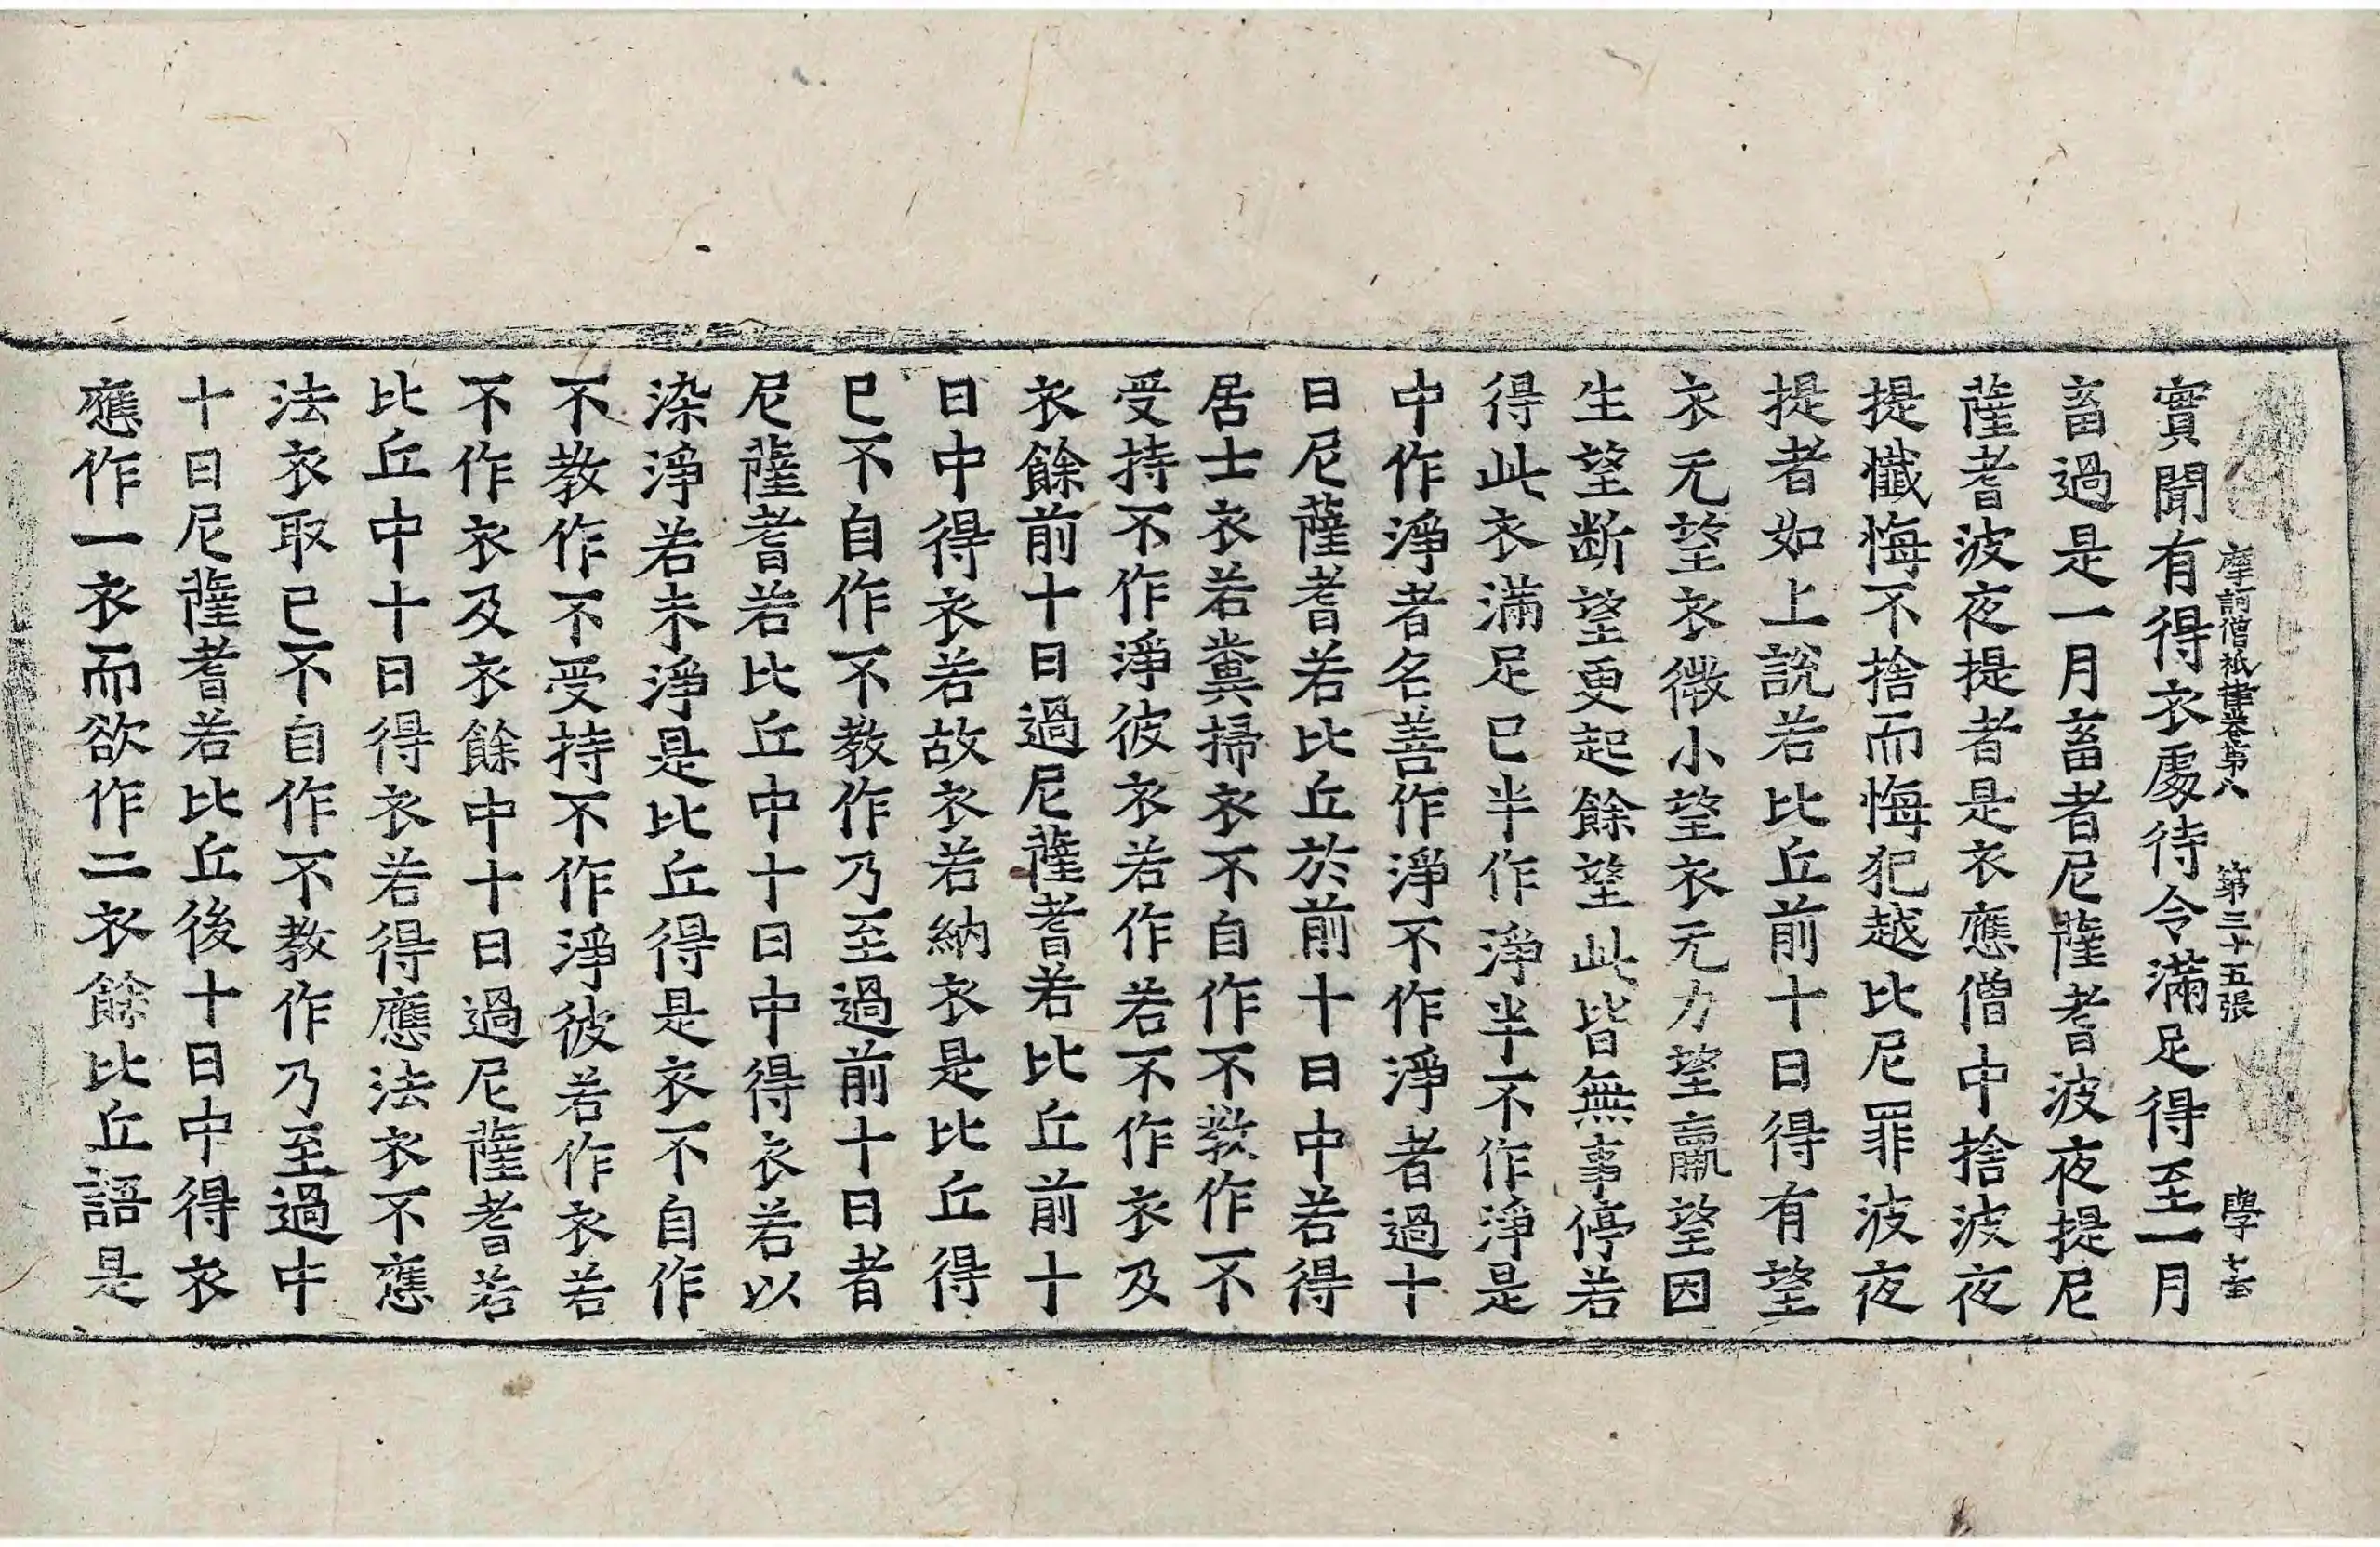 摩訶僧祇律卷第八 第三十五張 學
實聞有得衣處待令滿足得至一月
畜過是一月畜者尼薩耆波夜提尼
薩耆波夜提者是衣應僧中捨波夜
提懺悔不捨而悔犯越比尼罪波夜
提者如上說若比丘前十日得有望
衣无望衣微小望衣无力望羸望因
生望斷望更起餘望此皆無事停若
得此衣滿足已半作淨半不作淨是
中作淨者名善作淨不作淨者過十
日尼薩耆若比丘於前十日中若得
居士衣若糞掃衣不自作不教作不
受持不作淨彼衣若作若不作衣及
衣餘前十日過尼薩耆若比丘前十
日中得衣若故衣若納衣是比丘得
已不自作不教作乃至過前十日者
尼薩耆若比丘中十日中得衣若以
染淨若未淨是比丘得是衣不自作
不教作不受持不作淨彼若作衣若
不作衣及衣餘中十日過尼薩耆若
比丘中十日得衣若得應法衣不應
法衣取已不自作不教作乃至過中
十日尼薩耆若比丘後十日中得衣
應作一衣而欲作二衣餘比丘語是